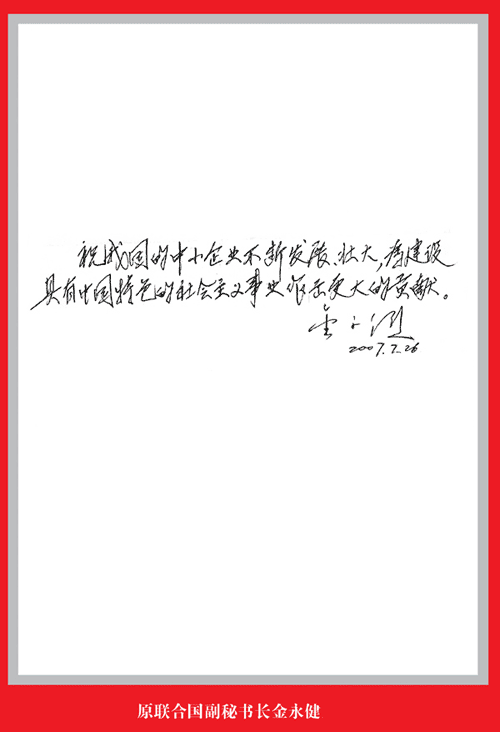 祝我国的中小企业不断发展、壮大,为建设
具有中国特色的社会主义事业作出更大的贡献。
2007.7.26
原联合国副秘书长金永健